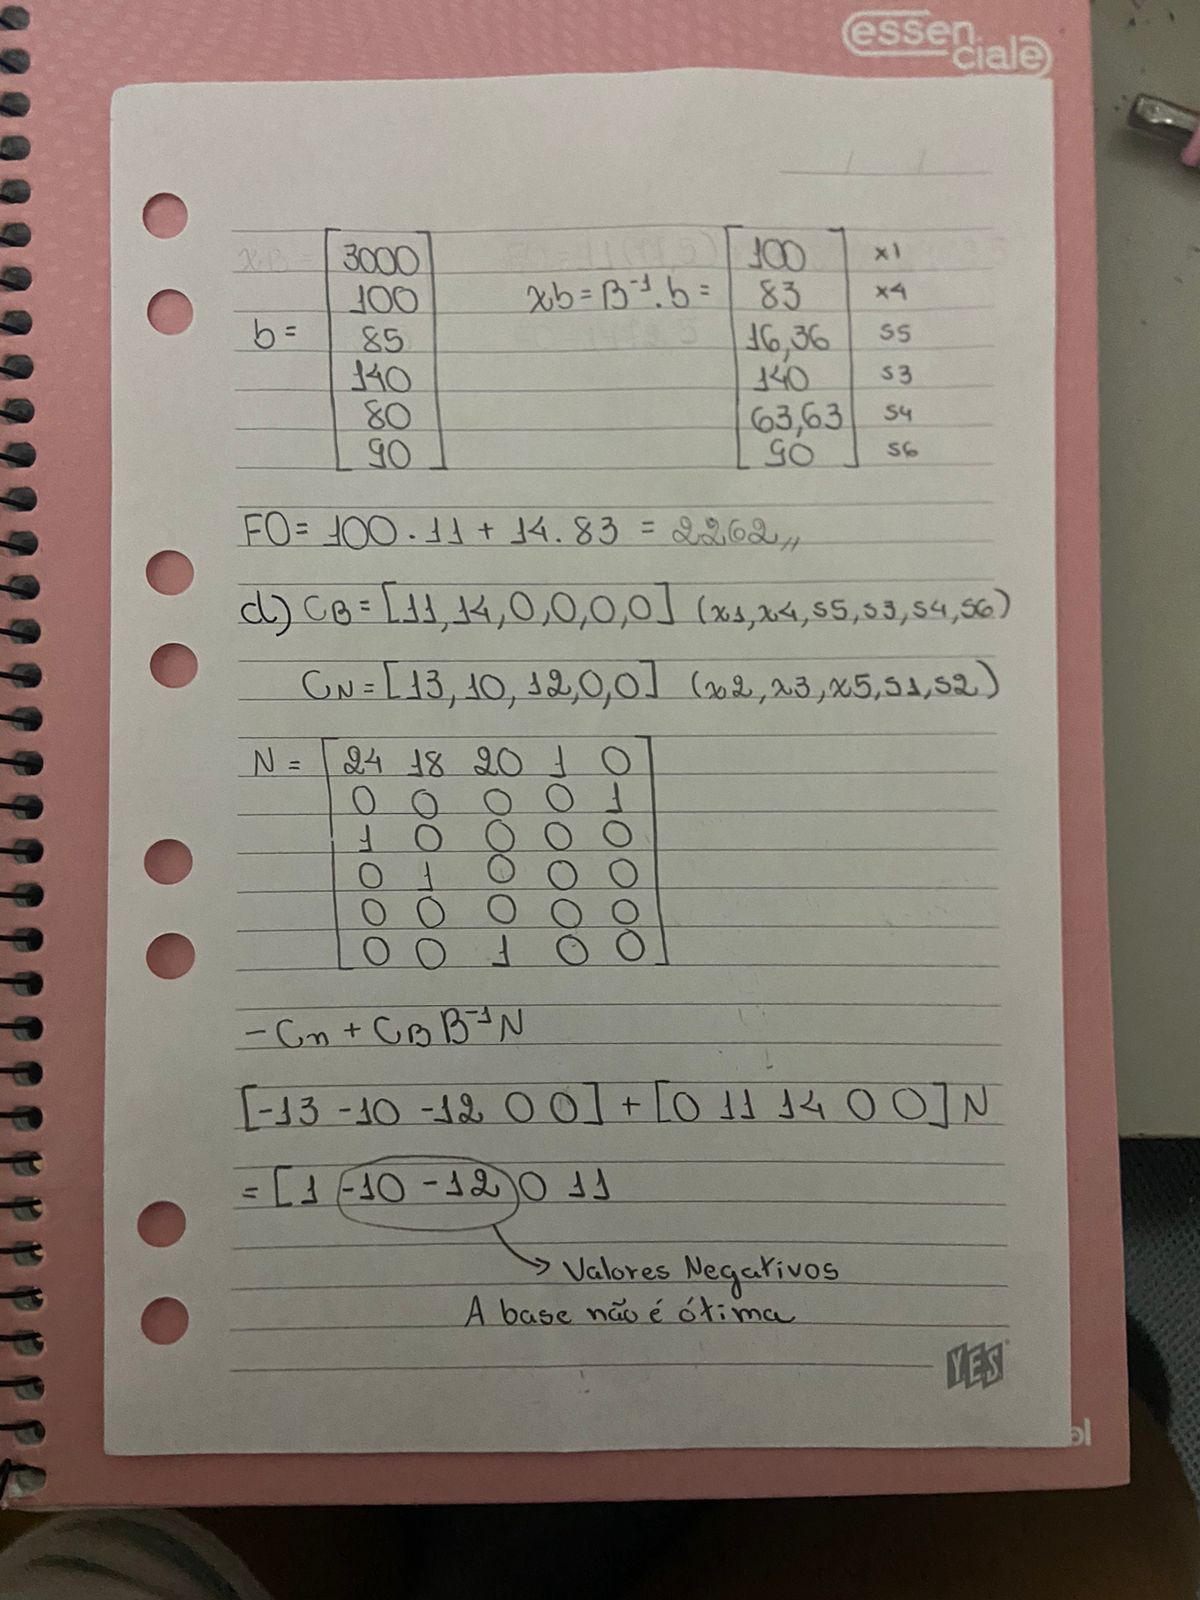 essen
ciale
b = [3000 100 85 140 80 90]
xb = B⁻¹.b = [100 83 16,36 140 63,63 90] x1 x4 s5 s3 s4 s6
FO = 100.11 + 14.83 = 2262,,
d) CB = [11, 14, 0, 0, 0, 0] (x1, x4, s5, s3, s4, s6)
CN = [13, 10, 12, 0, 0] (x2, x3, x5, s1, s2)
N = [24 18 20 1 0
0 0 0 0 1
1 0 0 0 0
0 1 0 0 0
0 0 0 0 0
0 0 1 0 0]
-Cn + CB B⁻¹N
[-13 -10 -12 0 0] + [0 11 14 0 0] N
= [1 -10 -12 0 11
Valores Negativos
A base não é ótima
YES
ol